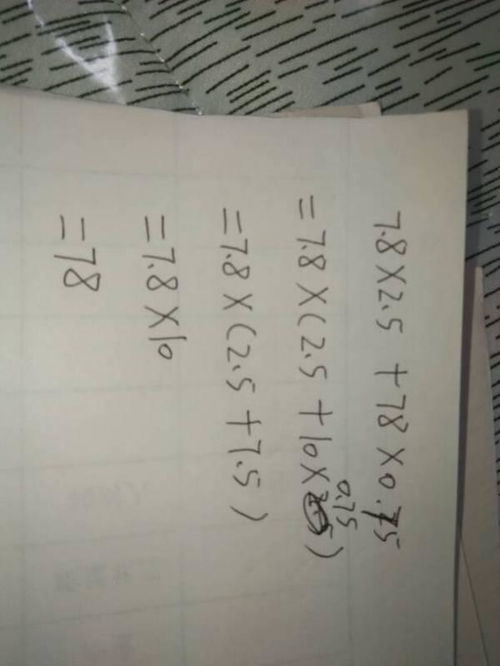 7.8×2.5+78×0.75
=7.8×(2.5+10×0.75)
=7.8×(2.5+7.5)
=7.8×10
=78